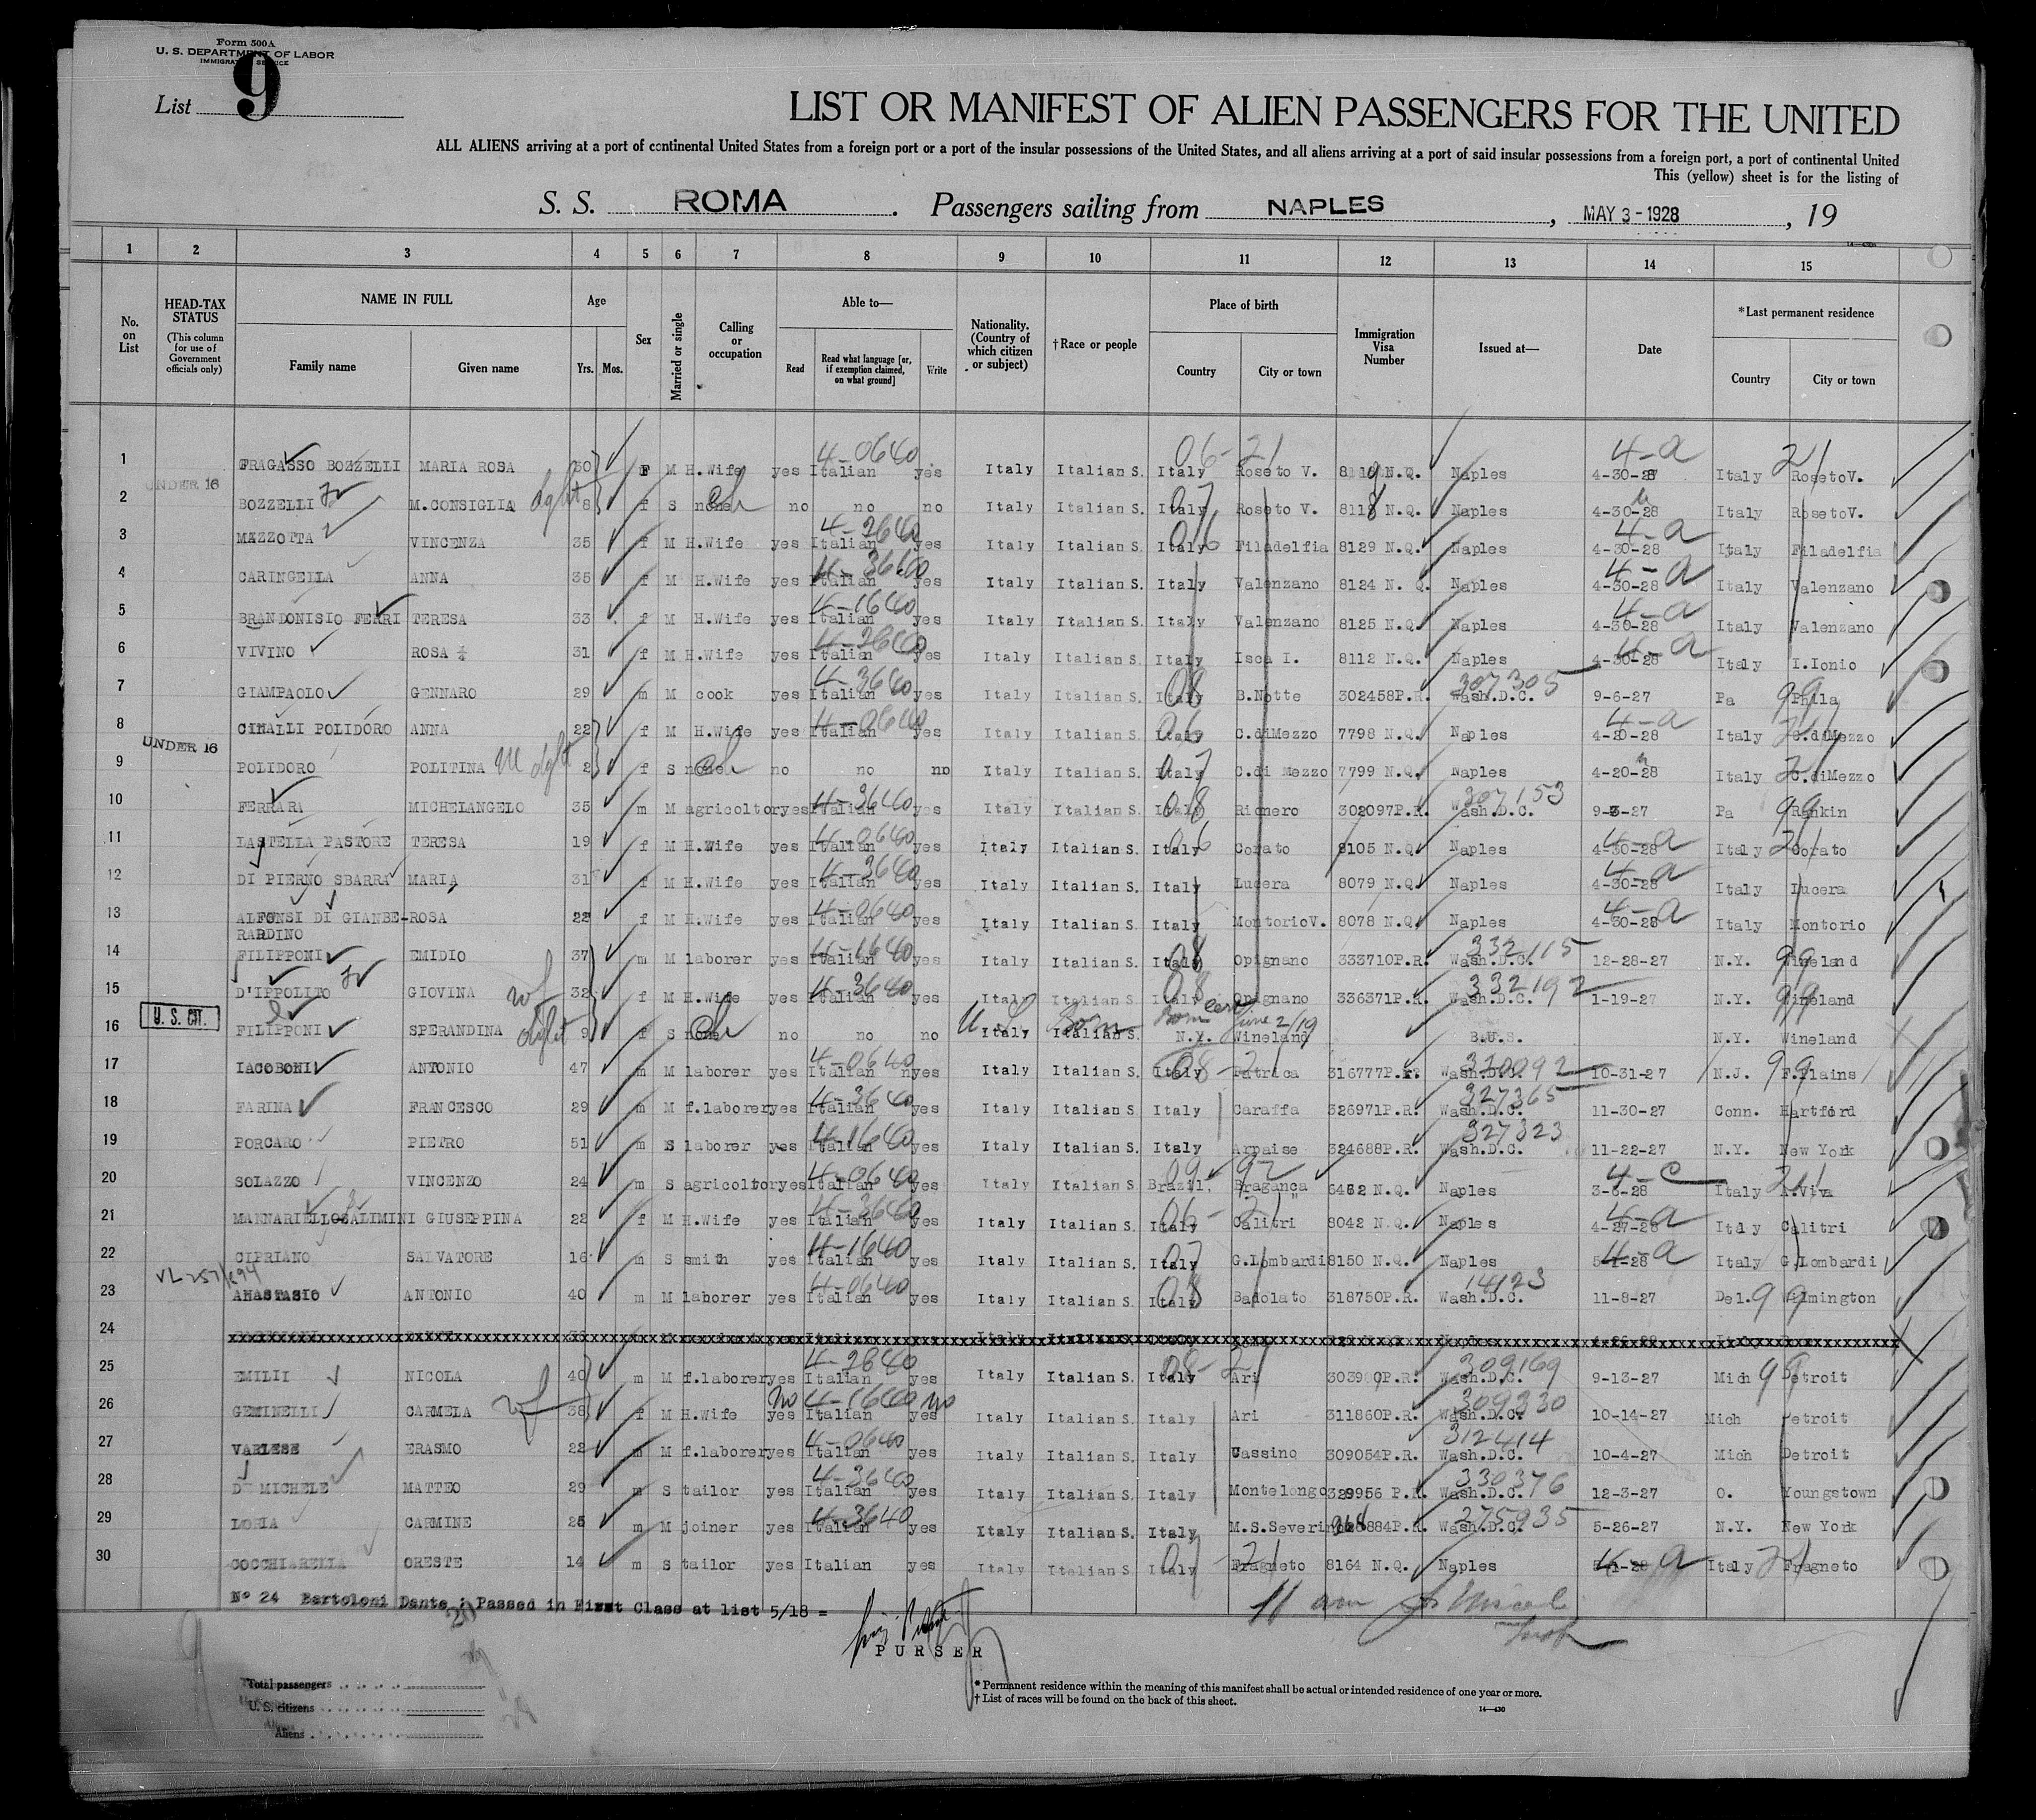 Form 500A
U. S. DEPARTMENT OF LABOR
IMMIGRATION SERVICE
List 9
LIST OR MANIFEST OF ALIEN PASSENGERS FOR THE UNITED
ALL ALIENS arriving at a port of continental United States from a foreign port or a port of the insular possessions of the United States, and all aliens arriving at a port of said insular possessions from a foreign port, a port of continental United
This (yellow) sheet is for the listing of
S. S. ROMA. Passengers sailing from NAPLES, MAY 3 - 1928, 19
1 2 3 4 5 6 7 8 9 10 11 12 13 14 15
No. on List
HEAD-TAX STATUS (This column for use of Government officials only)
NAME IN FULL
Family name Given name
Age Yrs. Mos.
Sex
Married or single
Calling or occupation
Able to—
Read Read what language [or, if exemption claimed, on what ground] Write
Nationality. (Country of which citizen or subject)
†Race or people
Place of birth
Country City or town
Immigration Visa Number
Issued at—
Date
*Last permanent residence
Country City or town
1 FRAGASSO BOZZELLI MARIA ROSA 30 F M H.Wife yes Italian 4-0640 yes Italy Italian S. Italy Roseto V. N.Q. Naples 4-30-28 4-a Italy RosetoV.
UNDER 16
2 BOZZELLI M.CONSIGLIA dght 8 f S none no no no Italy Italian S. Italy Roseto V. 8118 N.Q. Naples 4-30-28 Italy RosetoV.
3 MAZZOTTA VINCENZA 35 f M H.Wife yes Italian 4-2640 yes Italy Italian S. Italy Filadelfia 8129 N.Q. Naples 4-30-28 4-a Italy Filadelfia
4 CARINGELLA ANNA 35 f M H.Wife yes Italian 4-3640 yes Italy Italian S. Italy Valenzano 8124 N. Q. Naples 4-30-28 4-a Italy Valenzano
5 BRANDONISIO FERRI TERESA 33 f M H.Wife yes Italian 4-1640 yes Italy Italian S. Italy Valenzano 8125 N.Q. Naples 4-30-28 4-a Italy Valenzano
6 VIVINO ROSA 31 f M H.Wife yes Italian 4-2640 yes Italy Italian S. Italy Isca I. 8112 N.Q. Naples 4-30-28 4-a Italy I.Ionio
7 GIAMPAOLO GENNARO 29 m M cook yes Italian 4-3640 yes Italy Italian S. Italy 08 B.Notte 302458P.R. Wash.D.C. 307305 9-6-27 Pa 99 Phila
8 CINALLI POLIDORO ANNA 22 f M H.Wife yes Italian 4-0640 yes Italy Italian S. Italy 06 C.diMezzo 7798 N.Q. Naples 4-20-28 4-a Italy C.diMezzo
UNDER 16
9 POLIDORO POLITINA dght 2 f S none no no no Italy Italian S. Italy 07 C.di Mezzo 7799 N.Q. Naples 4-20-28 Italy C.diMezzo
10 FERRARA MICHELANGELO 35 m M agricoltor yes Italian 4-3640 yes Italy Italian S. Italy 08 Rionero 302097P.R. Wash.D.C. 307153 9-3-27 Pa 99 Rankin
11 LASTELLA PASTORE TERESA 19 f M H.Wife yes Italian 4-0640 yes Italy Italian S. Italy 06 Corato 8105 N.Q. Naples 4-30-28 4-a Italy Corato
12 DI PIERNO SBARRA MARIA 31 f M H.Wife yes Italian 4-3640 yes Italy Italian S. Italy Lucera 8079 N.Q. Naples 4-30-28 4-a Italy Lucera
13 ALFONSI DI GIANBE-RARDINO ROSA 22 f M H.Wife yes Italian 4-0640 yes Italy Italian S. Italy MontorioV. 8078 N.Q. Naples 4-30-28 4-a Italy Montorio
14 FILIPPONI EMIDIO 37 m M laborer yes Italian 4-1640 yes Italy Italian S. Italy 08 Opignano 333710P.R. Wash.D.C. 332115 12-28-27 N.Y. 99 Wineland
15 D'IPPOLITO GIOVINA wf 32 f M H.Wife yes Italian 4-3640 yes Italy Italian S. Italy 08 Opignano 336371P.R. Wash.D.C. 332192 1-19-27 N.Y. 99 Wineland
U. S. CIT.
16 FILIPPONI SPERANDINA dght 9 f S none no no no Italy Italian S. N.Y. Wineland June 2/19 B.U.S. N.Y. Wineland
17 IACOBONI ANTONIO 47 m M laborer yes Italian 4-0640 yes Italy Italian S. Italy 08-21 Patrica 316777P.R. Wash.D.C. 10-31-27 N.J. 99 F.Plains
18 FARINA FRANCESCO 29 m M f.laborer yes Italian 4-3640 yes Italy Italian S. Italy Caraffa 326971P.R. Wash.D.C. 327365 11-30-27 Conn. Hartford
19 PORCARO PIETRO 51 m S laborer yes Italian 4-1640 yes Italy Italian S. Italy Arpaise 324688P.R. Wash.D.C. 327323 11-22-27 N.Y. New York
20 SOLAZZO VINCENZO 24 m S agricoltor yes Italian 4-0640 yes Italy Italian S Brazil. 09 92 Braganca N.Q. Naples 3-6-28 4-c Italy 21 A.Viva
21 MANNARIELLO SALIMINI GIUSEPPINA 22 f M H.Wife yes Italian 4-3640 yes Italy Italian S. Italy 06-21 Calitri 8042 N.Q. Naples 4-27-28 4-a Italy Calitri
22 CIPRIANO SALVATORE 16 m S smith yes Italian 4-1640 yes Italy Italian S. Italy 07 G.Lombardi 8150 N.Q. Naples 5-1-28 4-a Italy G.Lombardi
23 ANASTASIO ANTONIO 40 m M laborer yes Italian 4-0640 yes Italy Italian S. Italy 08 Badolato 318750P.R. Wash.D.C. 14123 11-8-27 Del. 99 Wilmington
24
25 EMILII NICOLA 40 m M f.laborer yes Italian 4-2640 yes Italy Italian S. Italy 08-21 Ari P.R. Wash.D.C. 309169 9-13-27 Mich 99 Detroit
26 GEMINELLI CARMELA wf 38 f M H.Wife yes no Italian 4-1640 yes no Italy Italian S. Italy Ari 311860P.R. Wash.D.C. 309330 10-14-27 Mich Detroit
27 VARLESE ERASMO 22 m M f.laborer yes Italian 4-0640 yes Italy Italian S. Italy Cassino 309054P.R. Wash.D.C. 312414 10-4-27 Mich Detroit
28 DE MICHELE MATTEO 29 m S tailor yes Italian 4-3640 yes Italy Italian S. Italy Montelongo 329956 P.R. Wash.D.C. 330376 12-3-27 O. Youngstown
29 LORIA CARMINE 25 m M joiner yes Italian 4-3640 yes Italy Italian S. Italy M.S.Severino P.R. Wash.D.C. 275935 5-26-27 N.Y. New York
30 COCCHIARELLA ORESTE 14 m S tailor yes Italian yes Italy Italian S. Italy 07-21 Fragneto 8164 N.Q. Naples 5-1-28 4-a Italy 21 Fragneto
Nº 24 Bartoloni Dante ; Passed in First Class at list 5/18 =
PURSER
Total passengers
U. S. citizens
Aliens
* Permanent residence within the meaning of this manifest shall be actual or intended residence of one year or more.
† List of races will be found on the back of this sheet.
14—430